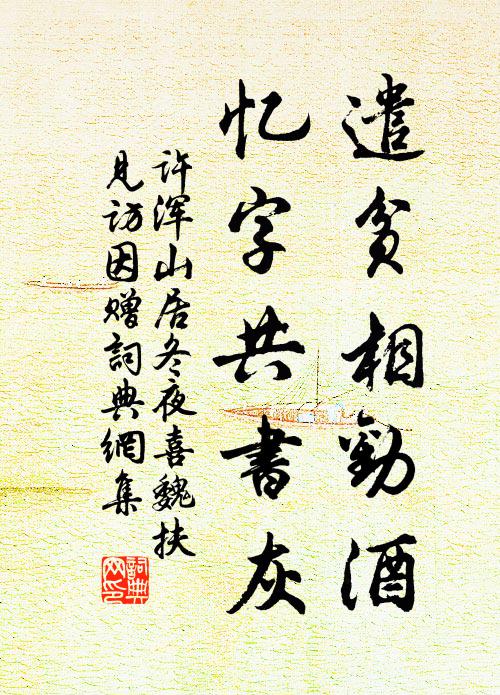 遣贫相劝酒
忆字共书灰
许浑山居冬夜喜魏扶
见访因赠词典网集
词典
网印